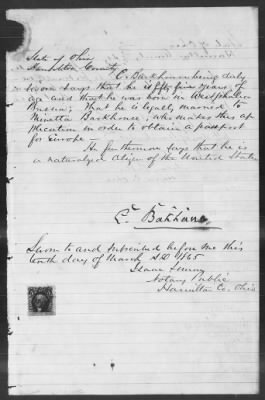 State of Ohio
Hamilton County
C. Backhouse being duly
sworn says that he is fifty five years of
age and that he was born in Westphalia
Prussia; That he is legally married to
Minetta Backhouse, who makes this ap
plication in order to obtain a passport
for Europe —
He furthermore says that he is
a naturalized citizen of the United States
C. Bakhaus
Sworn to and subscribed before me this
tenth day of March AD 1865
Notary Public
Hamilton Co. Ohio